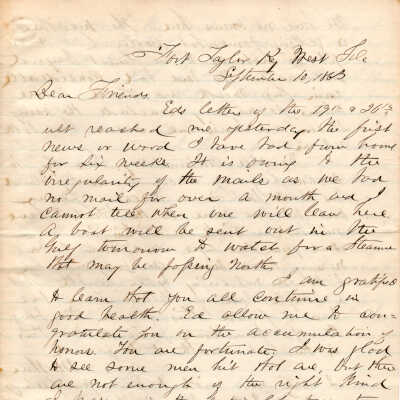 Fort Taylor Key West Fla.
September 10, 1863
Dear Friends.
Eds letter of the 19th & 26th
ult reached me yesterday, the first
news or word I have had from home
for six weeks. It is owing to the
irregularity of the mails as we had
no mail for over a month and I
cannot tell when one will leave here
A boat will be sent out in the
Gulf tomorrow to watch for a Steamer
that may be passing North.
I am gratified
to learn that you all continue in
good health. Ed allow me to con-
gratulate you on the accumulation of
honor. You are fortunate. I was glad
to see some men hit that are, but there
are not enough of the right kind